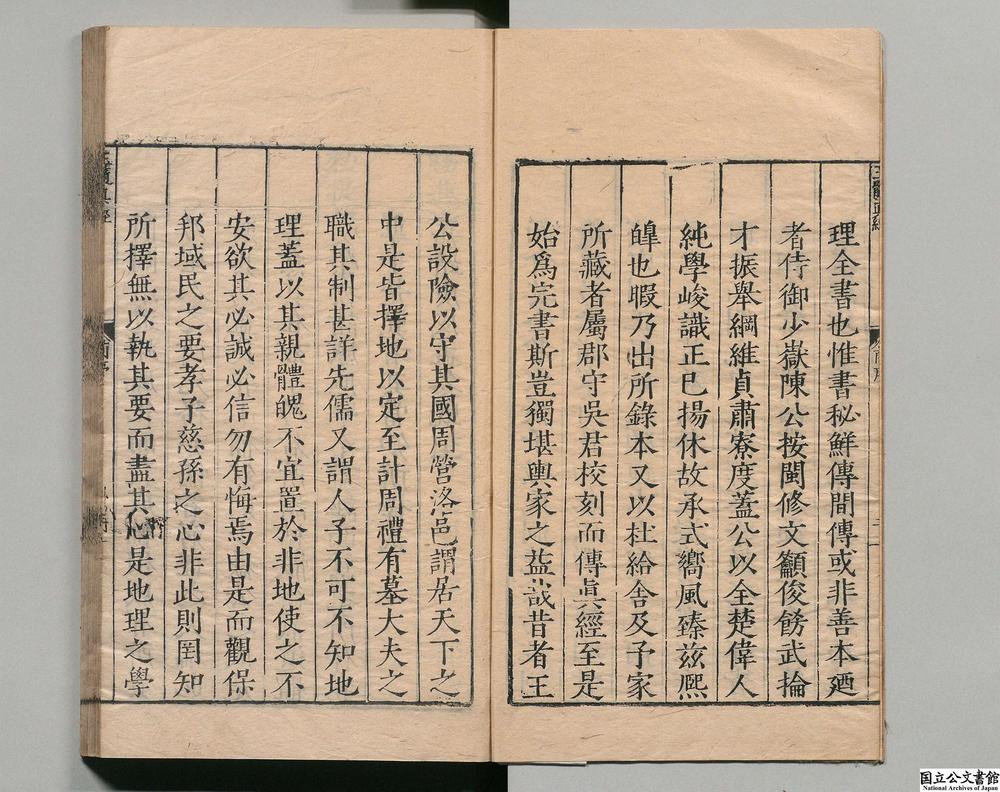 理全書也惟書秘鮮傳間傳或非善本廼
者侍御少嶽陳公按閩修文籲俊餝武掄
才振舉綱維貞肅寮度蓋公以全楚偉人
純學峻識正已揚休故承式嚮風臻茲熈
皥也暇乃出所錄本又以杜給舍及予家
所藏者屬郡守吳君校刻而傳眞經至是
始爲完書斯豈獨堪輿家之益哉昔者王
公設險以守其國周營洛邑謂居天下之
中是皆擇地以定至計周禮有墓大夫之
職其制甚詳先儒又謂人子不可不知地
理蓋以其親體魄不宜置於非地使之不
安欲其必誠必信勿有悔焉由是而觀保
邦域民之要孝子慈孫之心非此則罔知
所擇無以執其要而盡其心是地理之學
国立公文書館
National Archives of Japan